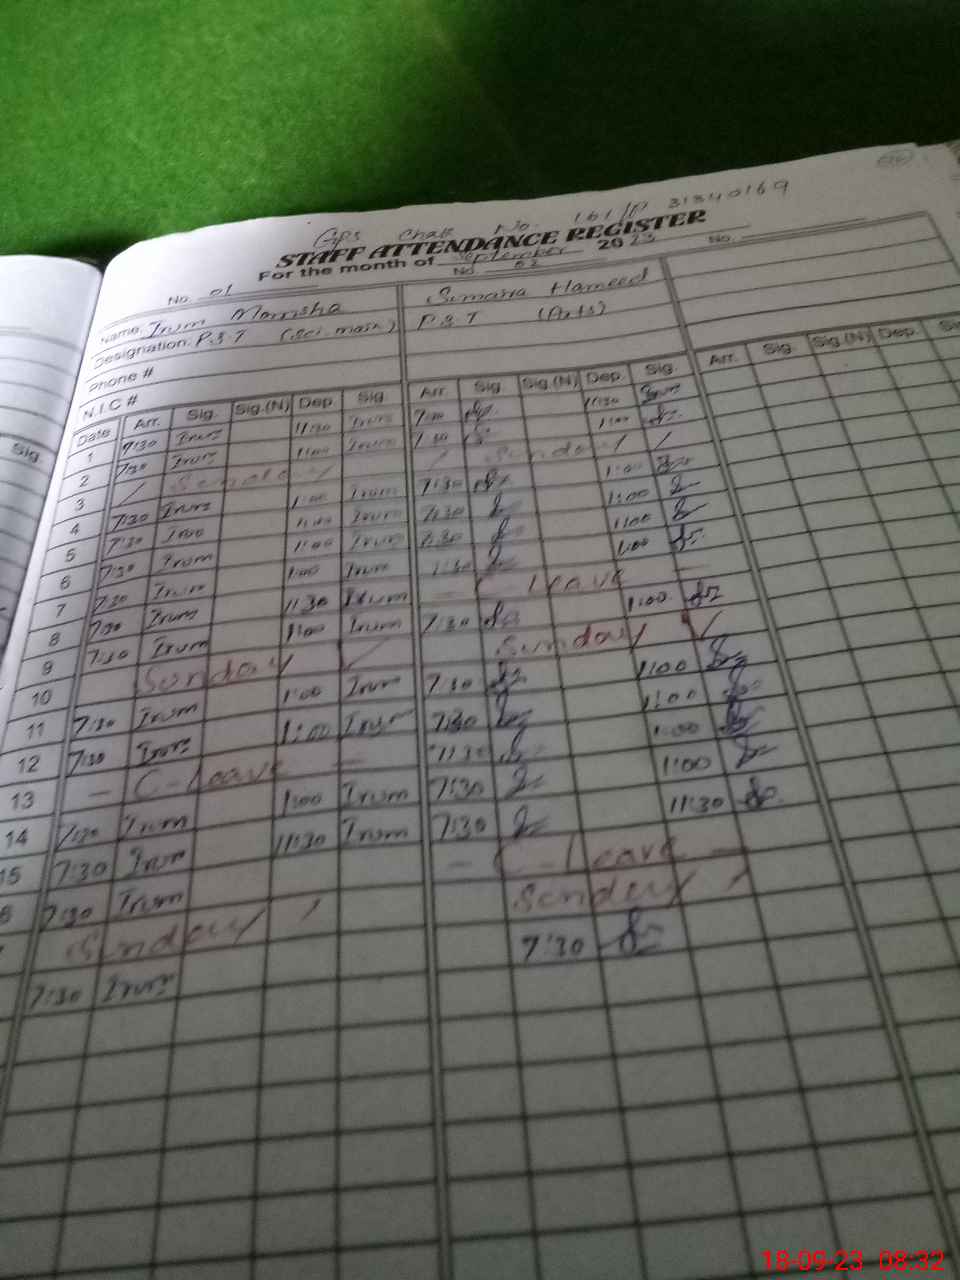 GPS Chak No. 161/P 31340169
STAFF ATTENDANCE REGISTER
For the month of September 2023
No. 01 No. 02 No.
Name. Irum Manisha Sumaira Hameed
Designation. P.S.T (Sci. math) P.S.T (Arts)
Phone #
N.I.C #
Date Arr. Sig. Sig.(N) Dep. Sig. Arr. Sig. Sig.(N) Dep. Sig. Arr. Sig. Sig.(N) Dep. Sig.
1 7:30 Irum 11:30 Irum 7:30 11:30
2 7:30 Irum 1:00 Irum 7:30 1:00
3 Sunday Sunday
4 7:30 Irum 1:00 Irum 7:30 1:00
5 7:30 Irum 1:00 Irum 7:30 1:00
6 7:30 Irum 1:00 Irum 7:30 1:00
7 7:30 Irum 1:00 Irum 7:30 1:00
8 7:30 Irum 11:30 Irum Leave
9 7:30 Irum 1:00 Irum 7:30 1:00
10 Sunday Sunday
11 7:30 Irum 1:00 Irum 7:30 1:00
12 7:30 Irum 1:00 Irum 7:30 1:00
13 C-Leave 7:30 1:00
14 7:30 Irum 1:00 Irum 7:30 1:00
15 7:30 Irum 11:30 Irum 7:30 11:30
7:30 Irum C-Leave
Sunday Sunday
7:30 Irum 7:30
18-09-23 08:32